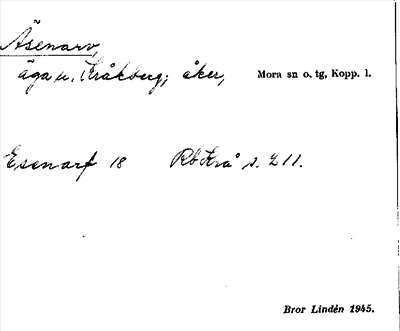 Äsenarv,
äga u. Kråkberg; åker, Mora sn o. tg, Kopp. l.
Esenarf 18 Rb Krå s. 211.
Bror Lindén 1945.